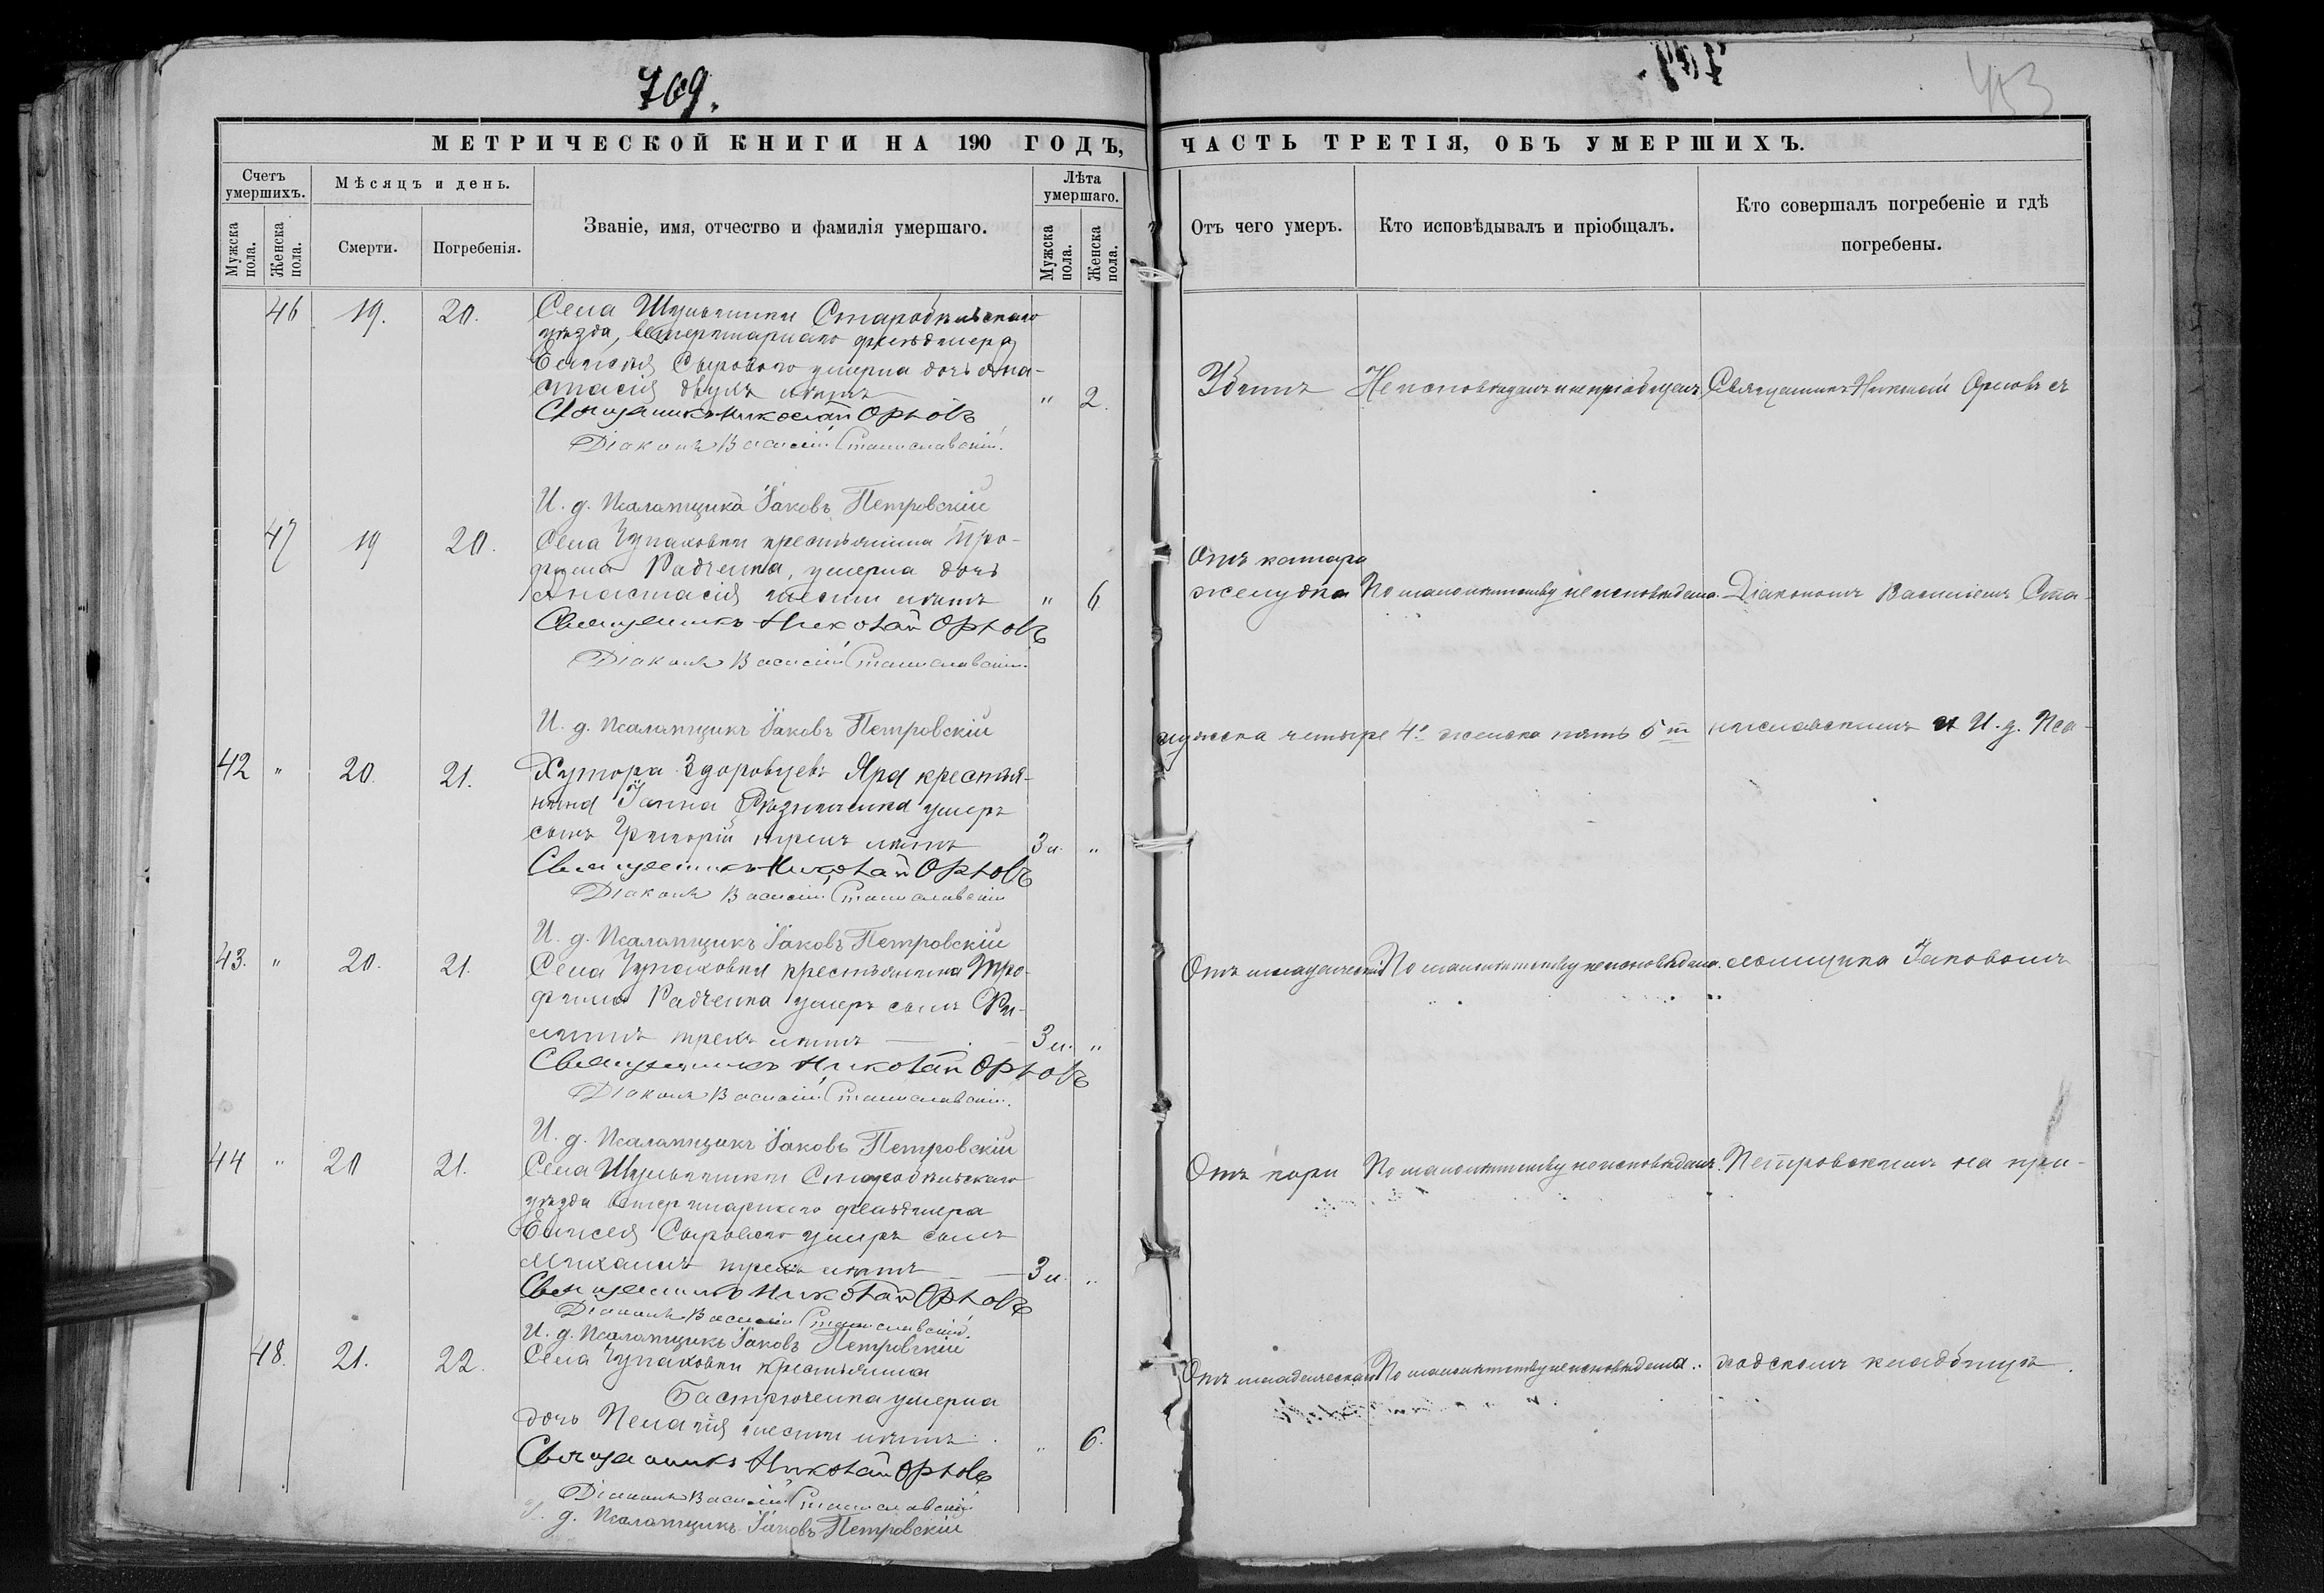 769.
453
МЕТРИЧЕСКОЙ КНИГИ НА 190 ГОДЪ,
ЧАСТЬ ТРЕТІЯ, ОБЪ УМЕРШИХЪ.
Счетъ умершихъ.
Мѣсяцъ и день.
Званіе, имя, отчество и фамилія умершаго.
Лѣта умершаго.
Отъ чего умеръ.
Кто исповѣдывалъ и пріобщалъ.
Кто совершалъ погребеніе и гдѣ
погребены.
Мужска пола.
Женска пола.
Смерти.
Погребенія.
Мужска пола.
Женска пола.
46 19. 20. Села Шульгинки Старобѣльскаго
уѣзда, ветеринарнаго фельдшера
Елисея Сырового умерла дочь Ана-
стасія двухъ лѣтъ " 2.
Священникъ Николай Орловъ
Діаконъ Василій Станиславскій.
И. д. Псаломщика Іаковъ Петровскій
47 19 20. Села Чупаховки крестьянина Тро-
фима Радченка, умерла дочь
Анастасія шести лѣтъ " 6
Священникъ Николай Орловъ
Діаконъ Василій Станиславскій.
И. д. Псаломщикъ Іаковъ Петровскій
42 " 20. 21. Хутора Здоровцевъ Яра крестья-
нина Іанна умеръ
сынъ Григорій трехъ лѣтъ 3 л. "
Священникъ Николай Орловъ
Діаконъ Василій Станиславскій
И. д. Псаломщикъ Іаковъ Петровскій
43. " 20. 21. Села Чупаховки крестьянина Тро-
фима Радченка умеръ сынъ Фи-
липпъ трехъ лѣтъ 3 л. "
Священникъ Николай Орловъ
Діаконъ Василій Станиславскій.
И. д. Псаломщикъ Іаковъ Петровскій
44 " 20 21. Села Шульгинки Старобѣльскаго
уѣзда ветеринарнаго фельдшера
Елисея Сырового умеръ сынъ
Михаилъ трехъ лѣтъ 3 л. "
Священникъ Николай Орловъ
Діаконъ Василій Станиславскій.
И. д. Псаломщикъ Іаковъ Петровскій
48. 21. 22. Села Чупаховки крестьянина
Бастрюченка умерла
дочь Пелагія шести лѣтъ " 6.
Священникъ Николай Орловъ
Діаконъ Василій Станиславскій
И. д. Псаломщикъ Іаковъ Петровскій
Неисповѣданъ и не пріобщалъ Священникъ Николай Орловъ съ
Отъ катара
желудка По малолѣтству не исповѣдана. Діакономъ Василіемъ Ста-
мужска четыре 4. женска пять 5 ниславскимъ и И. д. Пса-
Отъ младенческой По малолѣтству не исповѣданъ. ломщика Іаковомъ
Отъ кори По малолѣтству не исповѣданъ. Петровскимъ на при-
Отъ младенческой По малолѣтству не исповѣдана. ходскомъ кладбищѣ.